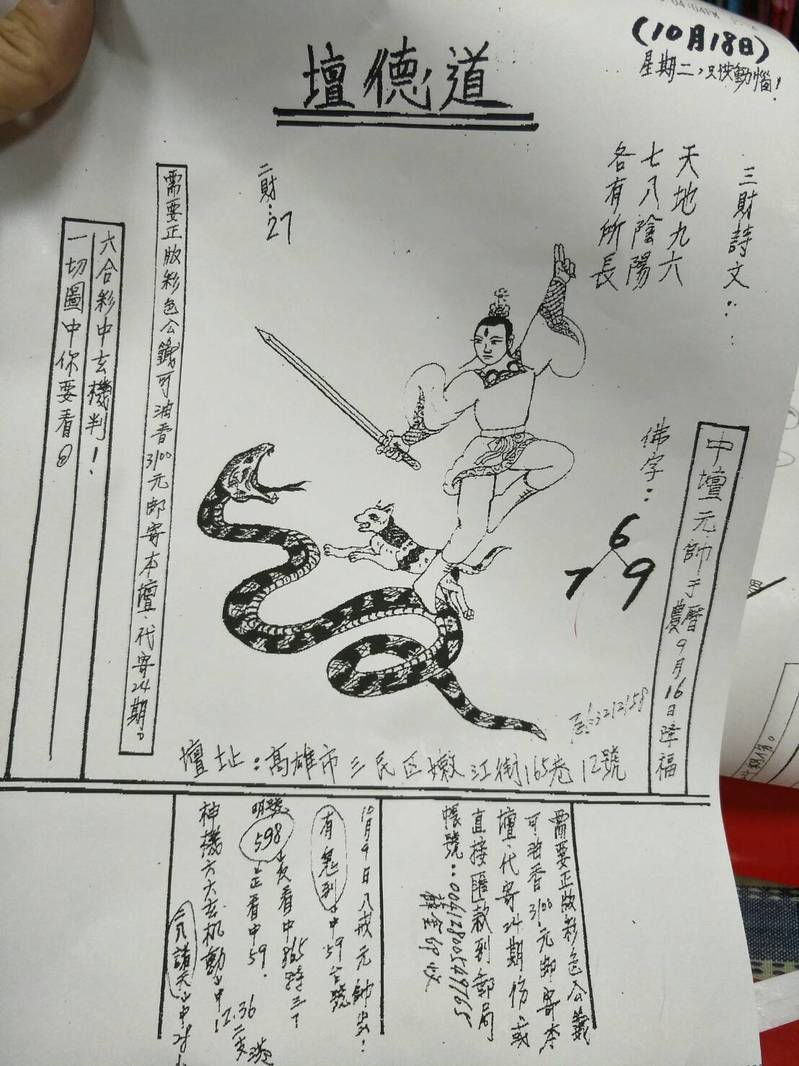 (10月18日)
星期二,
道德壇
三財詩文:
天地九六
七八陰陽
各有所長
二財:27
需要正版彩色公籤可油香3100元郵寄本壇.代寄24期.
六合彩中玄機判!
一切圖中你要看
佛字:
6
7 9
中壇元帥于農曆9月16日降福
壇址:高雄市三民区嫩江街165巷12號
需要正版彩色公籤
可油香3100元郵寄本
壇.代寄24期份.或
直接匯款到郵局
帳號:
10月9日八戒元帥出!
有鬼到 中59台號
明號
598 反看中865特三了
正看中59.
神機六六玄机動出中12.36
二支港